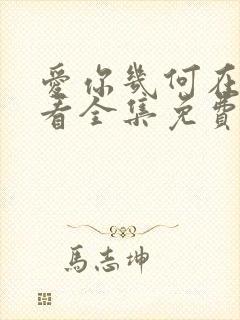 愛你幾何在
看全集免費
馬志坤